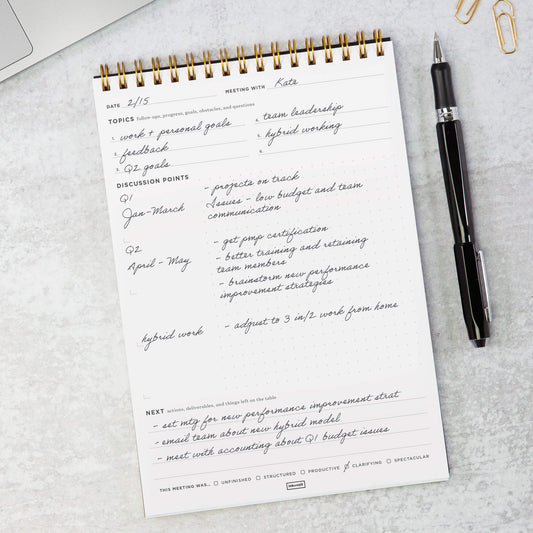 DATE 2/15 MEETING WITH Kate
TOPICS follow-ups, progress, goals, obstacles, and questions
1. work + personal goals
2. feedback
3. Q2 goals
4. team leadership
5. hybrid working
6.
DISCUSSION POINTS
Q1
Jan-March
- projects on track
Issues - low budget and team
communication
Q2
April - May
- get pmp certification
- better training and retaining
team members
- brainstorm new performance
improvement strategies
hybrid work
- adjust to 3 in/2 work from home
NEXT actions, deliverables, and things left on the table
- set mtg for new performance improvement strat
- email team about new hybrid model
- meet with accounting about Q1 budget issues
THIS MEETING WAS... UNFINISHED STRUCTURED PRODUCTIVE CLARIFYING SPECTACULAR